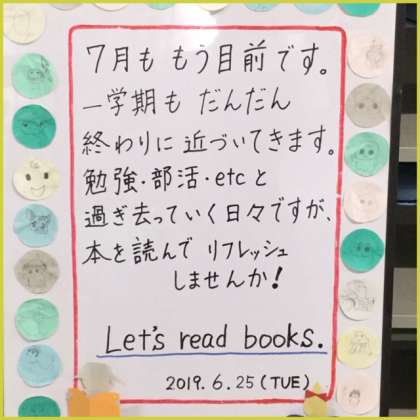 7月も もう目前です。
一学期も だんだん
終わりに 近づいてきます。
勉強・部活・etcと
過ぎ去っていく日々ですが、
本を読んで リフレッシュ
しませんか!
Let's read books.
2019.6.25(TUE)